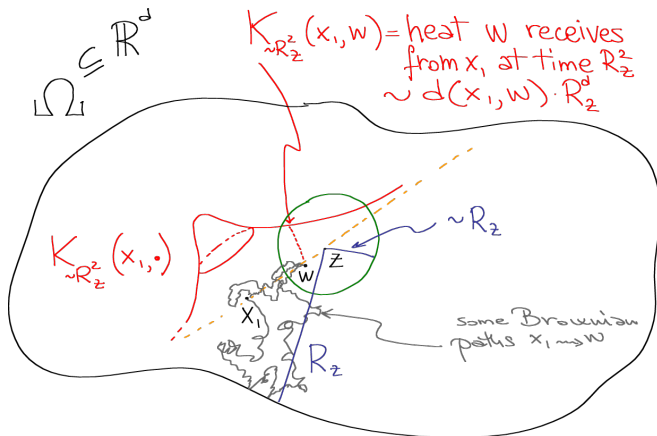 Ω ⊆ ℝ^d
K_{~R_z^2}(x_1, w) = heat w receives
from x_1 at time R_z^2
~ d(x_1, w) · R_z^d
K_{~R_z^2}(x_1, •)
~R_z
z
w
x_1
R_z
some Brownian
paths x_1 ⇝ w